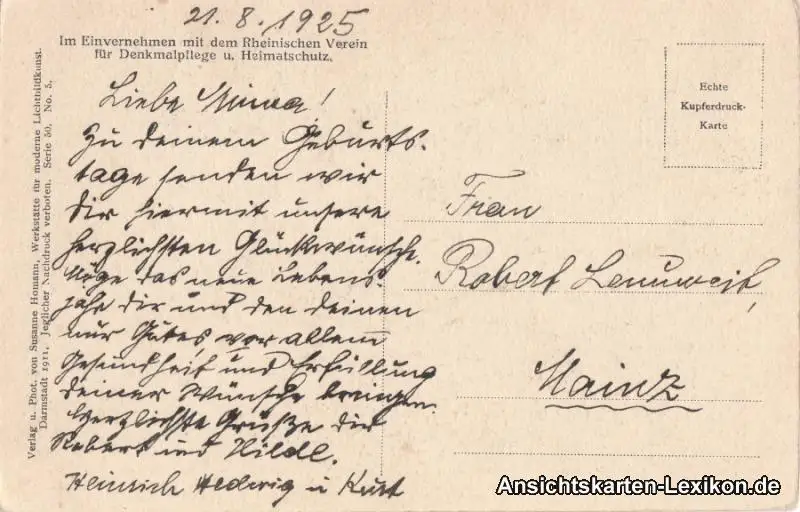 21. 8. 1925
Im Einvernehmen mit dem Rheinischen Verein
für Denkmalpflege u. Heimatschutz.
Liebe Minna!
Zu deinem Geburts-
tage senden wir
dir hiermit unsere
herzlichsten Glückwünsche.
Möge das neue Lebens-
jahr dir und den deinen
nur Gutes, vor allem
Gesundheit und Erfüllung
deiner Wünsche bringen.
Herzlichste Grüße dir
Robert und Hilde.
Heinrich Hedwig u Kurt
Echte
Kupferdruck-
Karte
Frau
Robert
Mainz
Verlag u. Phot. von Susanne Homann, Werkstätte für moderne Lichtbildkunst.
Darmstadt 1911. Jeglicher Nachdruck verboten. Serie 50. No. 5.
Ansichtskarten-Lexikon.de